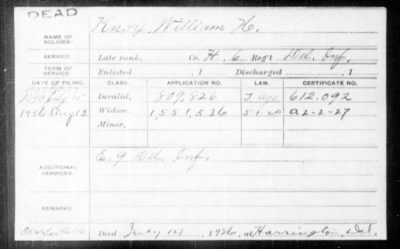 DEAD
NAME OF SOLDIER: Knox, William H.
SERVICE: Late rank, Co. H, 6 Reg't Del. Inf.
TERM OF SERVICE: Enlisted , 1 Discharged , 1
DATE OF FILING. CLASS. APPLICATION NO. LAW. CERTIFICATE NO.
Invalid, 809,826 612,092
1926 Aug 12 Widow, 1551,536 A2-2-27
Minor,
ADDITIONAL SERVICES: E. 9 Del. Inf.
REMARKS:
Died July 14, 1926, at Harrington, Del.